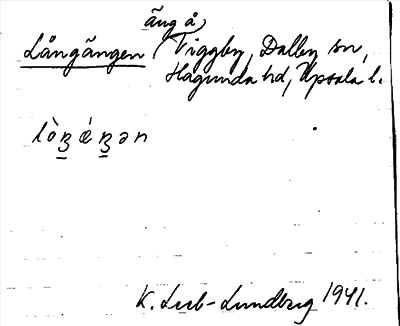 äng å
Långängen, Viggby, Dalby sn,
Hagunda hd, Upsala l.
lò̀ꞫǽꞫən
K. Leeb-Lundberg 1941.